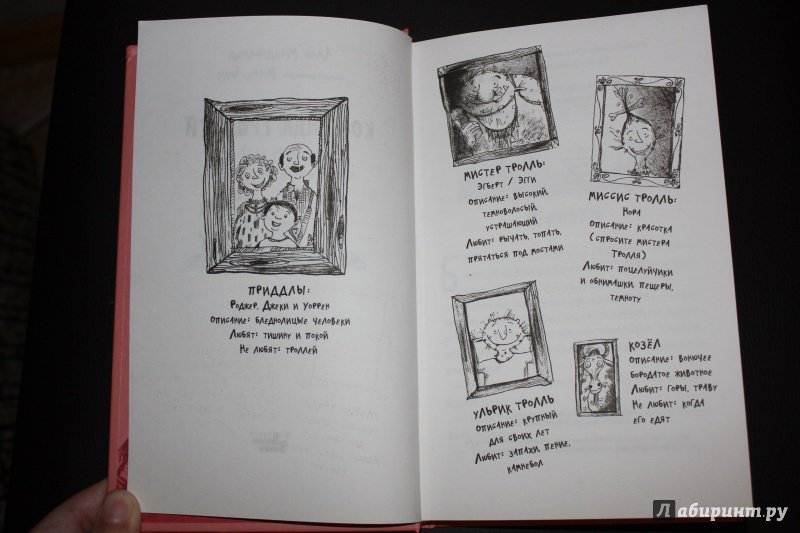 Приддлы:
Роджер, Джеки и Уоррен
Описание: бледнолицые человеки
Любят: тишину и покой
Не любят: троллей
Мистер Тролль:
Эгберт / Эгги
Описание: высокий
темноволосый
устрашающий
Любит: рычать, топать,
прятаться под мостами
Миссис Тролль:
Нора
Описание: красотка
(спросите мистера
Тролля)
Любит: поцелуйчики
и обнимашки, пещеры,
темноту
Ульрик Тролль
Описание: крупный
для своих лет
Любит: запахи, пение,
камнебол
Козёл
Описание: вонючее
бородатое животное
Любит: горы, траву
Не любит: когда
его едят
Лабиринт.ру